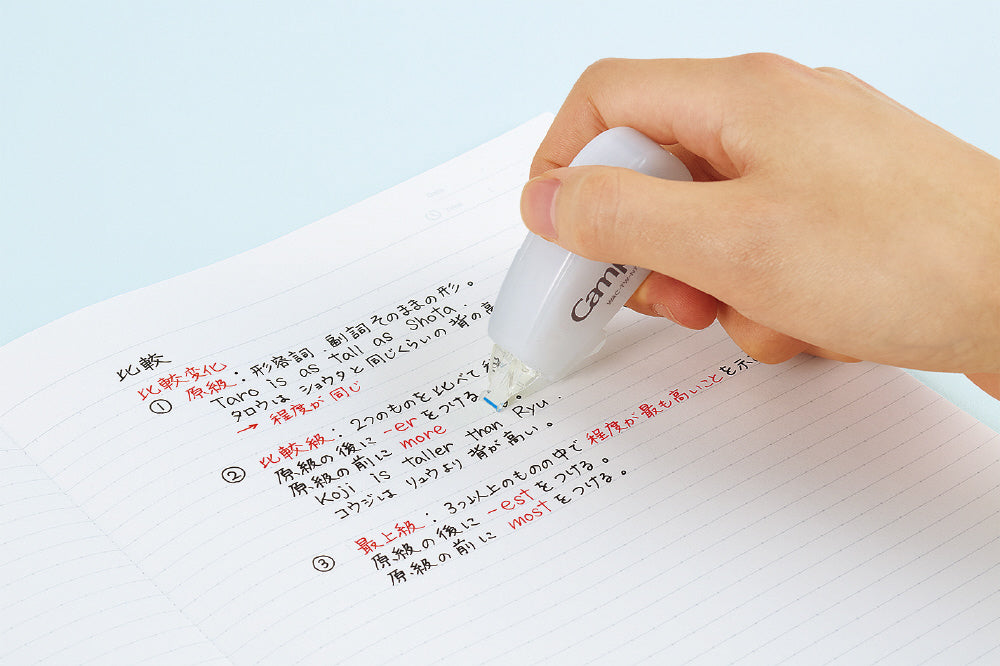 比較
比較変化
① 原級：形容詞、副詞そのままの形。
Taro is as tall as Shota.
タロウは ショウタと同じくらいの 背の高
→ 程度が同じ
② 比較級：2つのものを比べて
原級の後に -erをつける
原級の前に more
Koji is taller than Ryu.
コウジは リュウより 背が高い。
③ 最上級：3つ以上のものの中で 程度が最も高いことを示
原級の後に -estをつける。
原級の前に mostをつける。